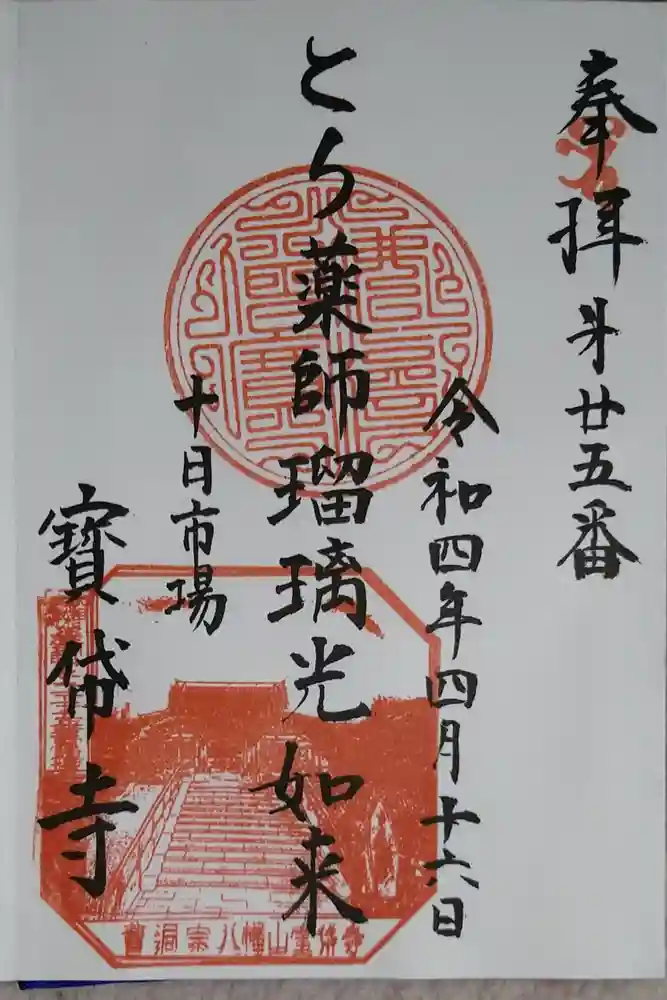 奉拝 才廿五番
令和四年四月十六日
とら薬師瑠璃光如来
十日市場
寳帒寺
曹洞宗八幡山宝帒寺